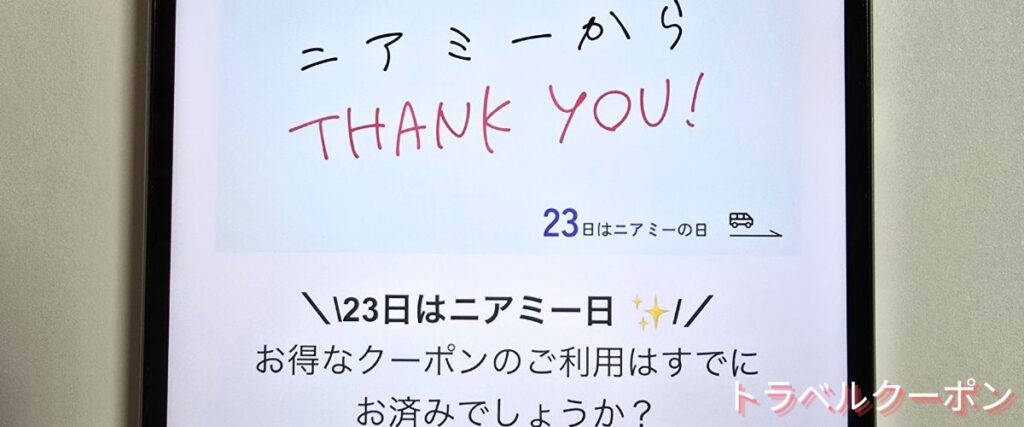 ニアミーから
THANK YOU!
23日はニアミーの日
\\23日はニアミー日 ✨//
お得なクーポンのご利用はすでに
お済みでしょうか？
トラベルクーポン